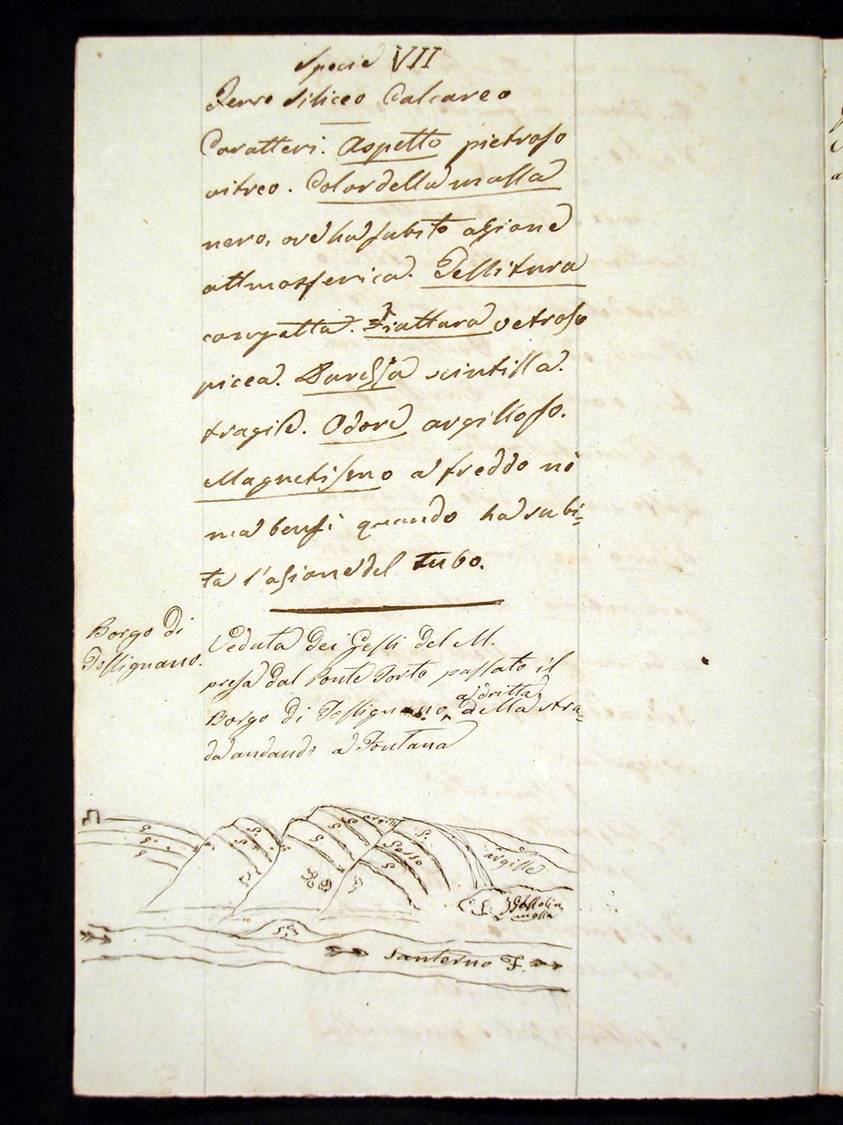 Specie VII
Ferro siliceo Calcareo
Caratteri. Aspetto pietroso
vitreo. Color della massa
nero, ove ha subito azione
attmosferica. Tessitura
compatta. Frattura vetroso
picea. Durezza scintilla.
fragile. Odore argilloso.
Magnetismo a freddo nò
ma bensì quando ha subi=
ta l'azione del tubo.
Borgo di
Tossignano.
Veduta dei Gessi del M.
presa dal Ponte Torto passato il
a dritta
Borgo di Tossignano, della stra=
da andando a Fontana
G.
G.
G.
G.
G.
G.
G.
G.
Gesso
argille
Santerno F.